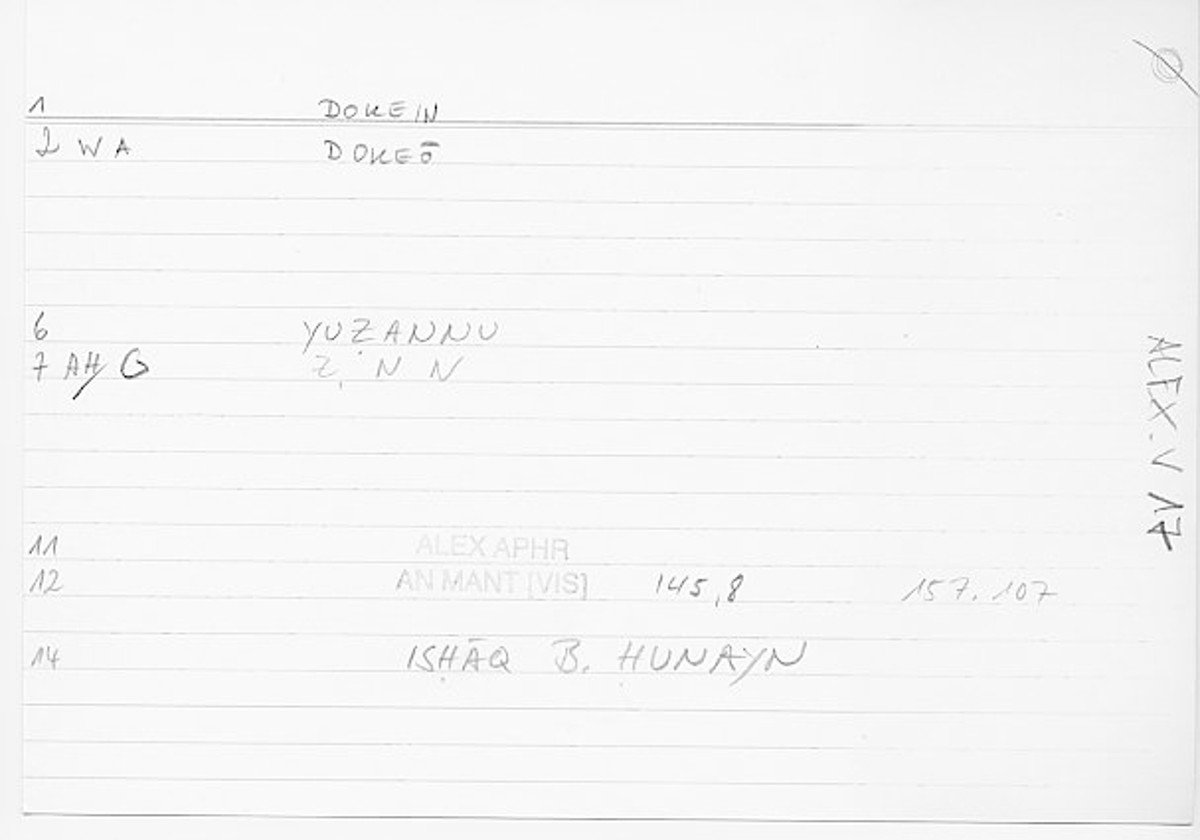 1 DOKEIN
2 WA DOKEŌ
6 YUẒANNU
7 AH/G Ẓ N N
11 ALEX APHR
12 AN MANT [VIS] 145,8 157.107
14 ISḤĀQ B. ḤUNAYN
ALEX.V 17